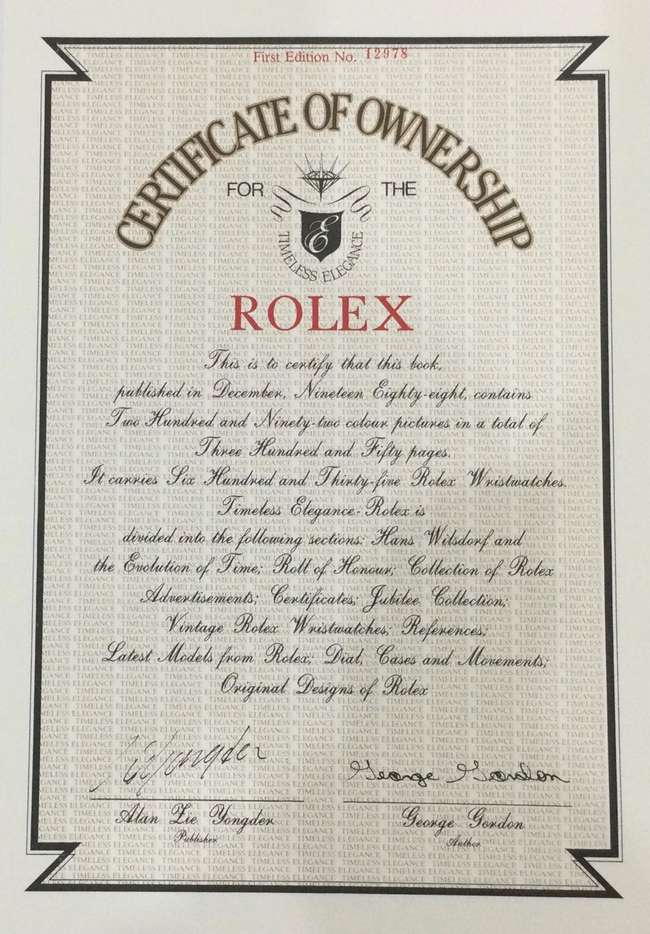 First Edition No. 12978
CERTIFICATE OF OWNERSHIP
FOR THE
E
TIMELESS ELEGANCE
ROLEX
This is to certify that this book,
published in December, Nineteen Eighty-eight, contains
Two Hundred and Ninety-two colour pictures in a total of
Three Hundred and Fifty pages.
It carries Six Hundred and Thirty-five Rolex Wristwatches.
Timeless Elegance-Rolex is
divided into the following sections: Hans Wilsdorf and
the Evolution of Time; Roll of Honour; Collection of Rolex
Advertisements; Certificates; Jubilee Collection;
Vintage Rolex Wristwatches; References;
Latest Models from Rolex; Dial, Cases and Movements;
Original Designs of Rolex
Yongder George Gordon
Alan Zie Yongder George Gordon
Publisher Author